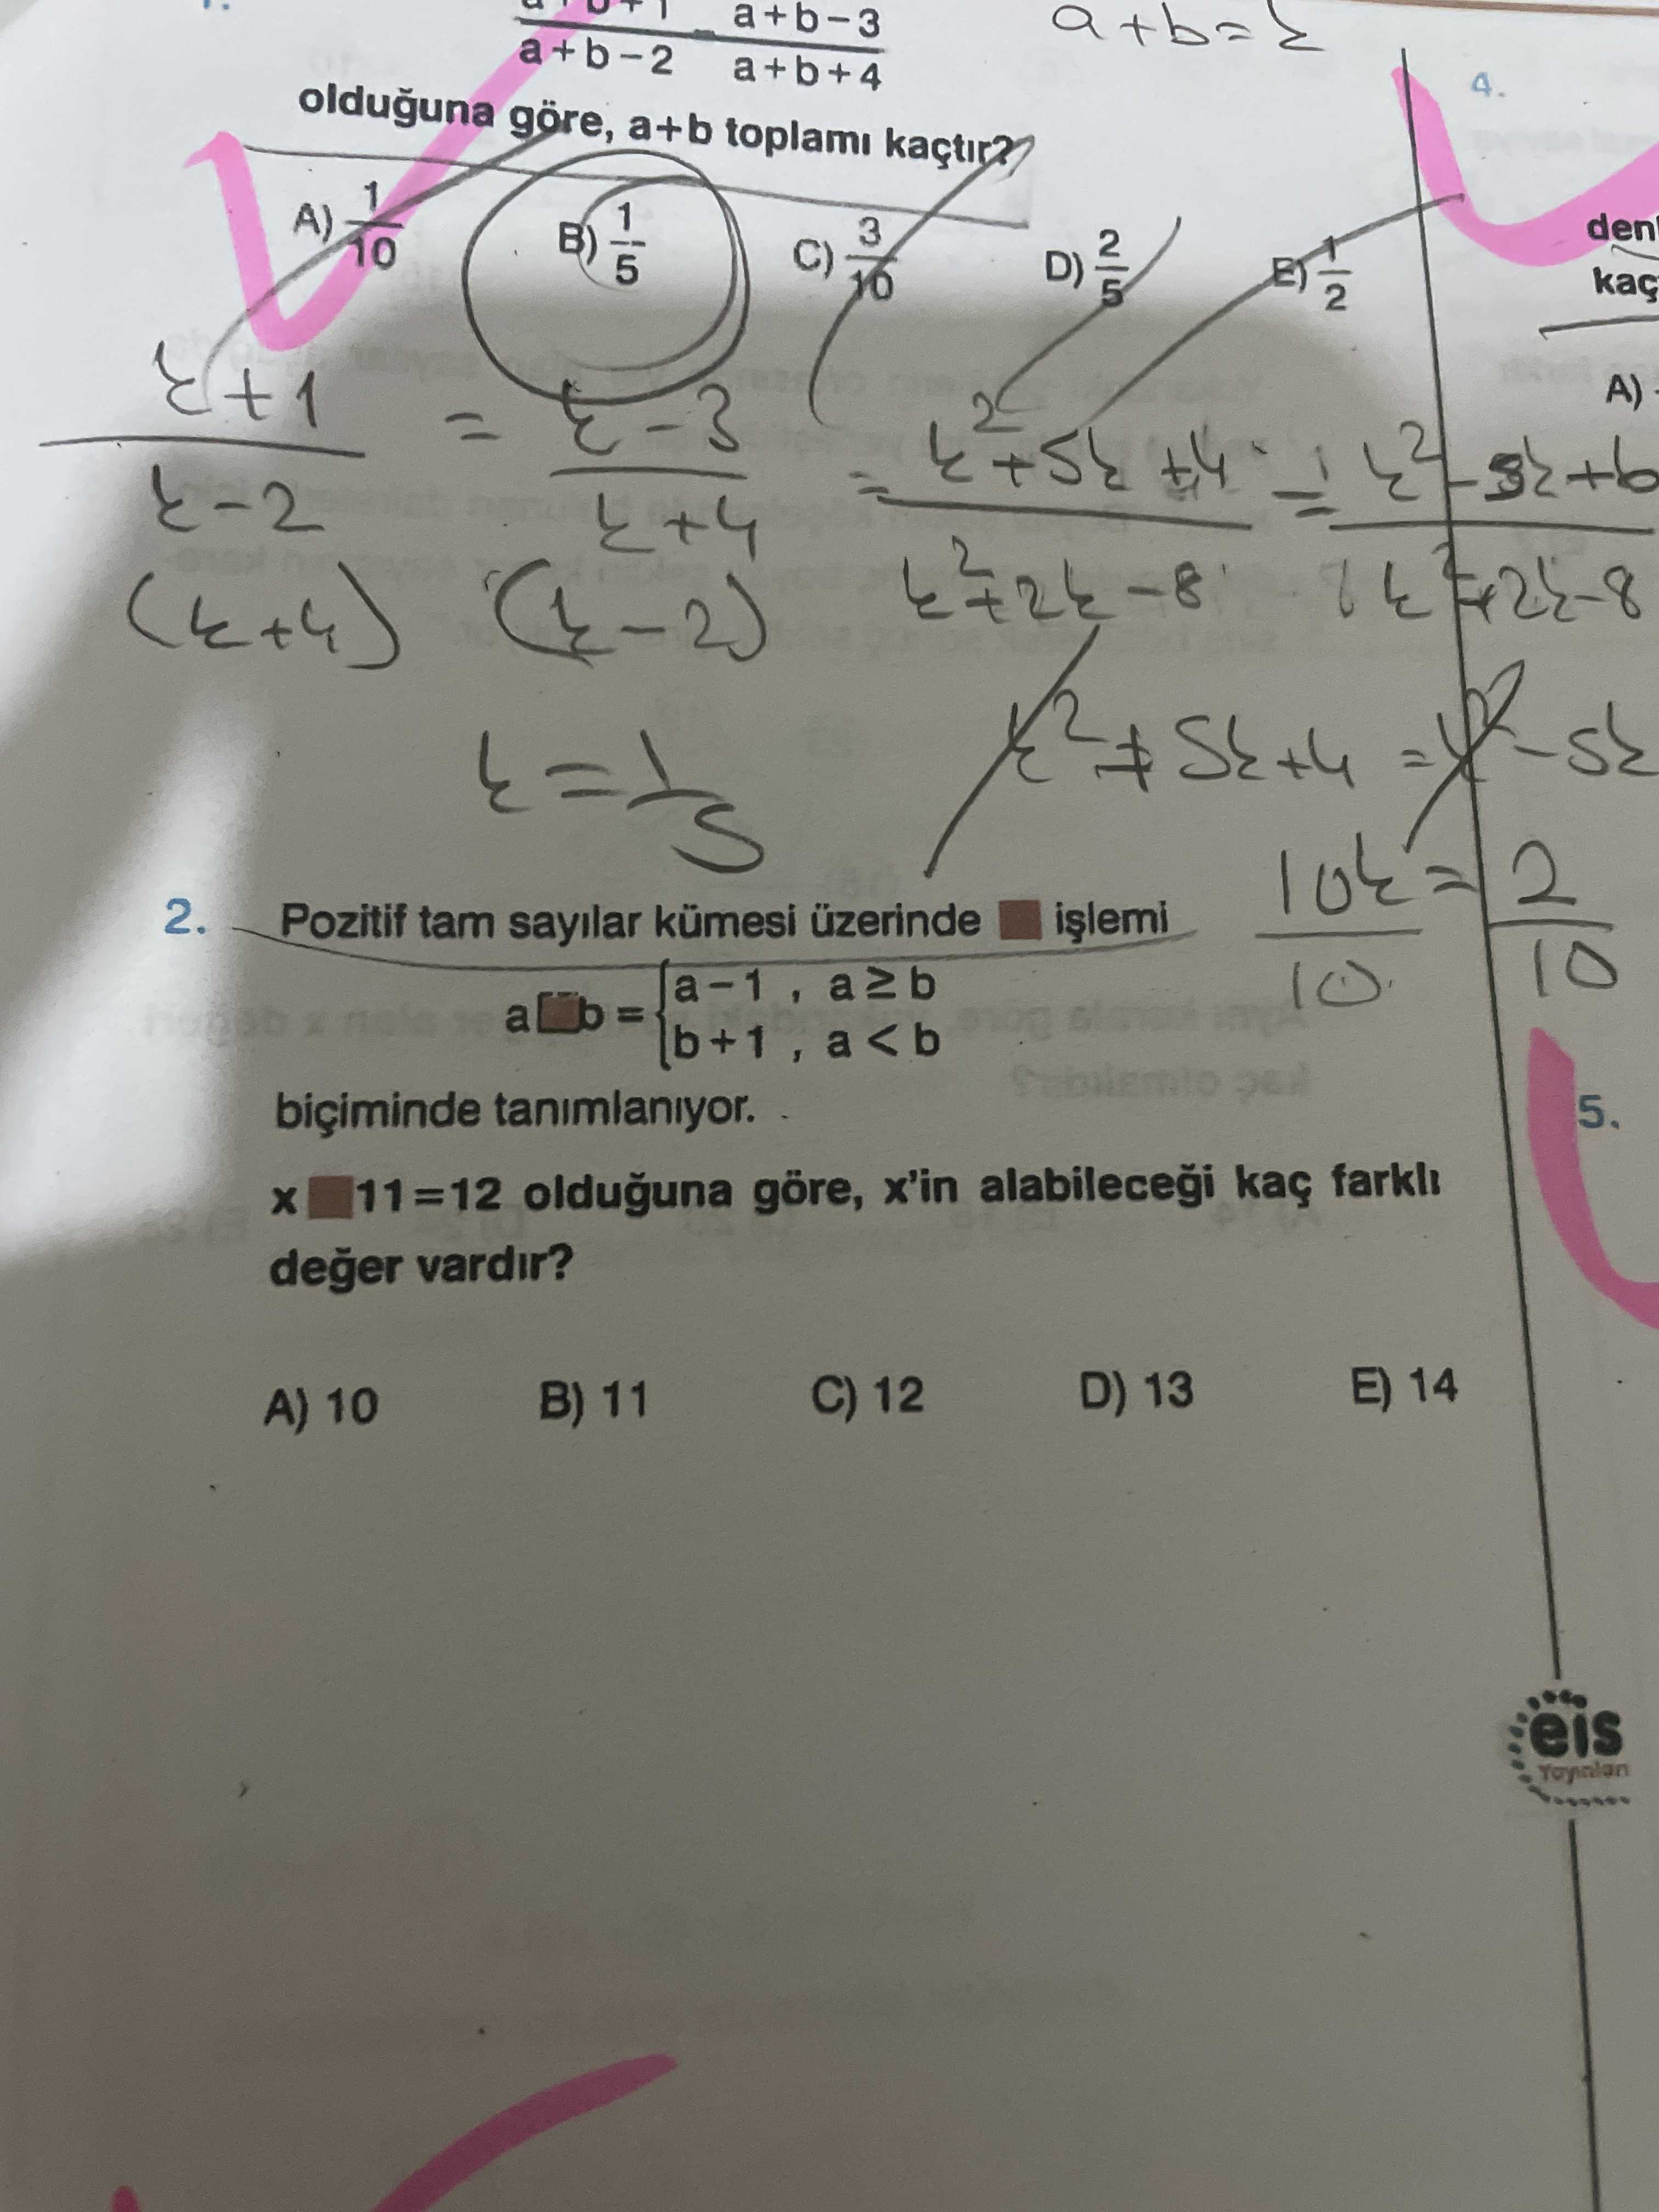 1.
a+b+1 / a+b-2 = a+b-3 / a+b+4
a+b=k
olduğuna göre, a+b toplamı kaçtır?
A) 1/10 B) 1/5 C) 3/10 D) 2/5 E) 1/2
k+1 / k-2 = k-3 / k+4 = k²+5k+4 / k²+2k-8 = k²-5k+6 / k²+2k-8
(k+4) (k-2)
k²+5k+4=k²-5k
k=1/5
10k / 10 = 2 / 10
2. Pozitif tam sayılar kümesi üzerinde işlemi
a b = { a-1 , a≥b
b+1 , a<b
biçiminde tanımlanıyor.
x 11=12 olduğuna göre, x'in alabileceği kaç farklı
değer vardır?
A) 10 B) 11 C) 12 D) 13 E) 14
4.
kaç
A)
5.
eis
Yayınları